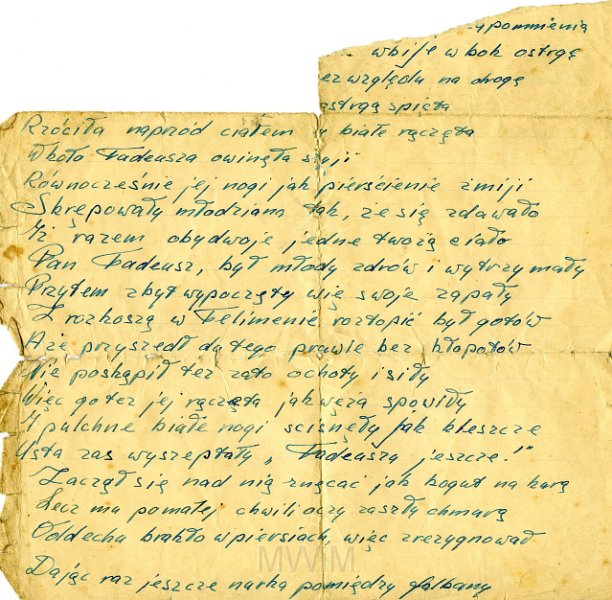 ypomnienia
wbije w bok ostrogę
bez względu na drogę
ostrogą spięta
Rzóciła naprzód ciałem y białe rączęta
Wkoło Tadeusza owinęła szyji
Równocześnie jej nogi jak pierścienie żmiji
Skrępowały młodziana tak, że się zdawało
Iż razem obydwoje jedne tworzą ciało
Pan Tadeusz, był młody zdrów i wytrzymały
Przytem zbyt wypoczęty więc swoje zapały
Z rozkoszą w Telimenie roztopić był gotów
A że przyszedł do tego prawie bez kłopotów
Nie poskąpił też zato ochoty i siły
Więc go też jej rączęta jak węża spowiły
I pulchne białe nogi scisnęły jak kleszcze
Usta zas wyszeptały „Tadeuszą jeszcze!"
Zaczął się nad nią znęcać jak kogut na kurą
Lecz mu po małej chwili oczy zaszły chmurą
Oddechu brakło w piersiach, więc zrezygnował
MWM
Dając raz jeszcze nurka pomiędzy falbany